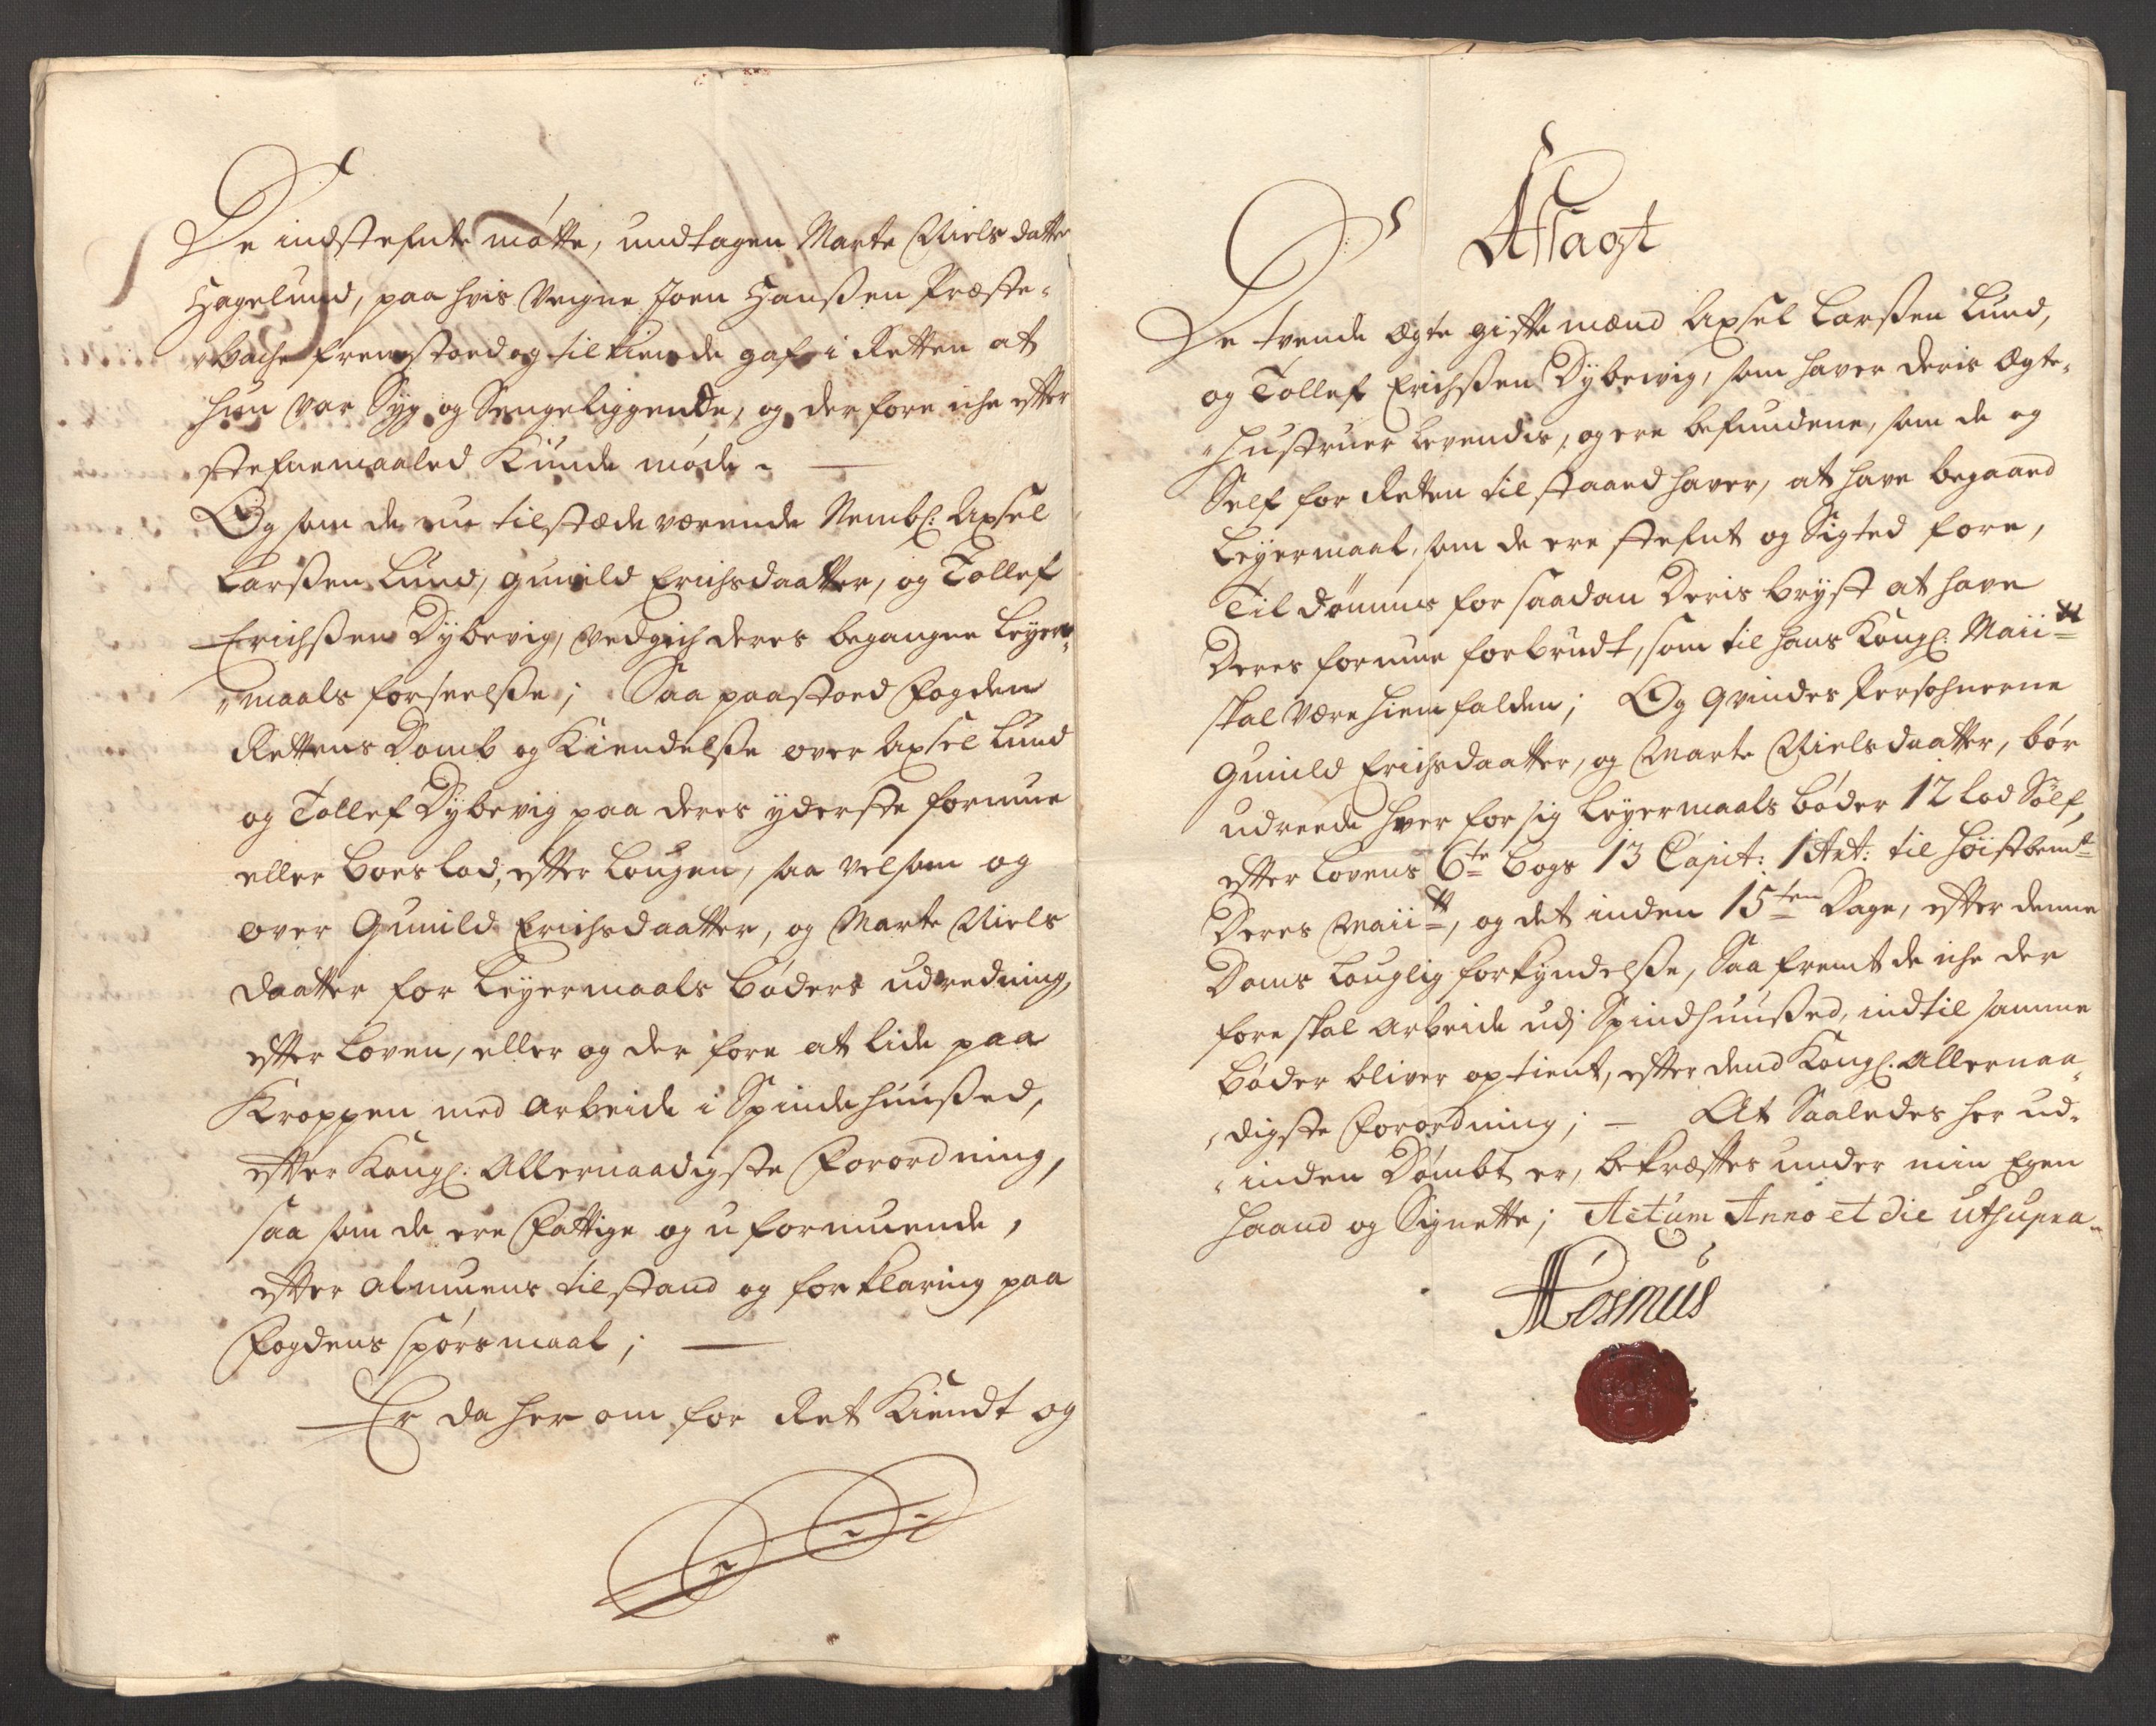 De indstefnte møtte, undtagen Marte Nielsdatter
Hagelund, paa hvis Vegne Joen Hanßen Præste-
"bache fremstoed og tilkiende gaf i Retten at
hun var Syg og Sengeliggende, og derfore iche efter
stefnemaaled Kunde møde. —
Og som de nu tilstæde værende Nembl: Axsel
Larßen Lund, Gunild Erichsdaatter, og Tollef
Erichßen Dybevig, vedgich deres begangne Leyer-
"maals forseelße; Saa paastoed Fogden
Rettens Domb og Kiendelße over Axsel Lund
og Tollef Dybevig paa deres yderste formue
eller boeslod, efter Lougen, saa velsom og
over Gunild Erichsdaatter, og Marte Niels
daatter for Leyermaals bøders udredning,
efter Loven, eller og der fore at lide paa
Kroppen med Arbeide i Spindehuußed,
efter Kongl: Allernaadigste Forordning,
saa som de ere Fattige og uformuende,
efter Almuens tilstand og forklaring paa
Fogdens spørsmaal; —
Er da her om for Ret Kiendt og
Afsagt
De tvende Ægte gifte mænd Axsel Larßen Lund,
og Tollef Erichßen Dybevig, som haver deris Ægte-
"hustruer levendis, og ere befundene, som de og
Self for Retten tilstaaed haver, at have begaaed
Leyermaal, som de ere stefnt og Sigted fore,
Til dømmes for saadan Deris bryst at have
Deres formue forbrudt, som til hans Kongl: Maiitt
skal være hiemfalden; Og Qvindes Persohnerne
Gunild Erichsdaatter, og Marte Nielsdaatter, bør
udreede hver for sig Leyermaals bøder 12 lod Sølf,
efter Lovens 6te bogs 13 Capit: 1 Art: til høistbemte
Deres Maiitt, og det inden 15ten Dage, efter denne
Doms Louglig forkyndelße, Saa fremt de iche der
fore skal Arbeide udj Spindhuußed, indtil samme
bøder bliver optient, efter dend Kongl: Allernaa-
"digste Forordning; — At Saaledes her ud-
"inden Dømbt er, bekræftes under min Egen
haand og Signette; Actum Anno et die utsupra